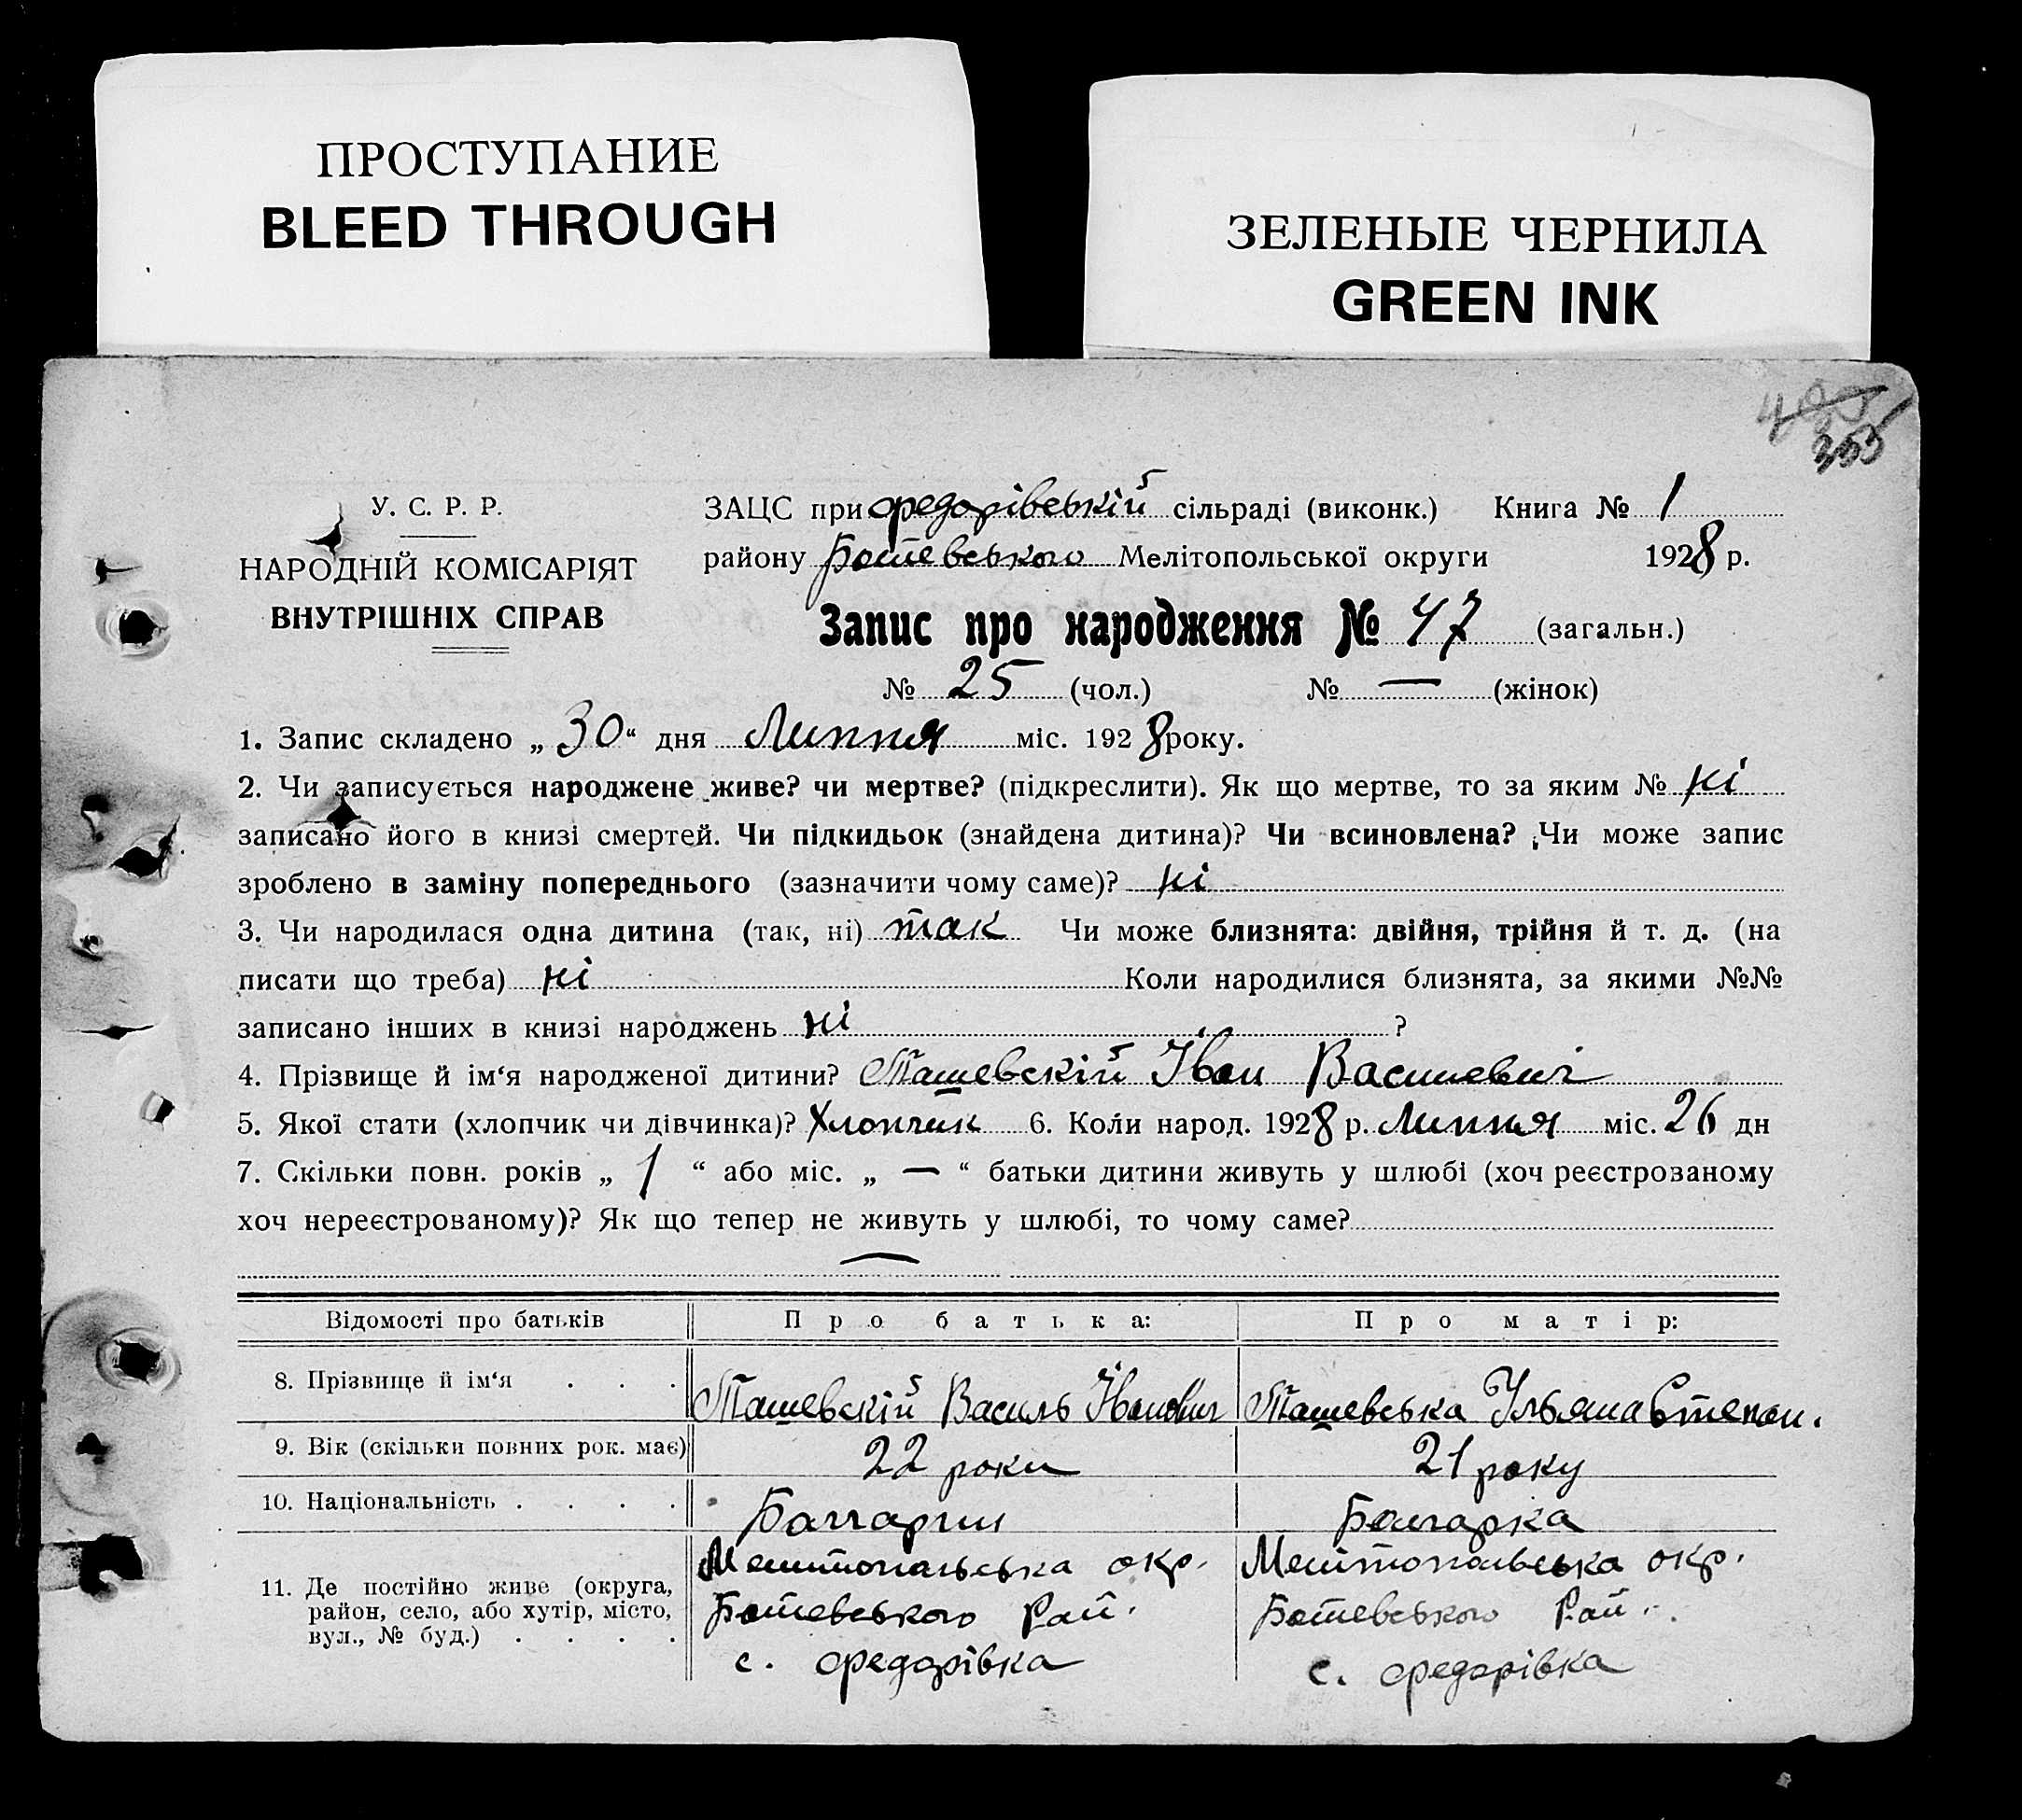 ПРОСТУПАНИЕ
BLEED THROUGH
ЗЕЛЕНЫЕ ЧЕРНИЛА
GREEN INK
355
У. С. Р. Р.
НАРОДНІЙ КОМІСАРІЯТ
ВНУТРІШНІХ СПРАВ
ЗАЦС при Федорівській сільраді (виконк.) Книга № 1
району Ботевського Мелітопольської округи 1928 р.
Запис про народження № 47 (загальн.)
№ 25 (чол.) № — (жінок)
1. Запис складено „ 30 “ дня Липня міс. 1928 року.
2. Чи записується народжене живе? чи мертве? (підкреслити). Як що мертве, то за яким № ні
записано його в книзі смертей. Чи підкидьок (знайдена дитина)? Чи всиновлена? Чи може запис
зроблено в заміну попереднього (зазначити чому саме)? ні
3. Чи народилася одна дитина (так, ні) так Чи може близнята: двійня, трійня й т. д. (на
писати що треба) ні Коли народилися близнята, за якими №№
записано інших в книзі народжень ні ?
4. Прізвище й ім‘я народженої дитини? Ташевскій Іван Васильевич
5. Якої стати (хлопчик чи дівчинка)? Хлопчик 6. Коли народ. 1928 р. Липня міс. 26 дн
7. Скільки повн. років „ 1 “ або міс. „ — “ батьки дитини живуть у шлюбі (хоч реєстрованому
хоч нереєстрованому)? Як що тепер не живуть у шлюбі, то чому саме?
—
Відомості про батьків Про батька: Про матір:
8. Прізвище й ім‘я . . . Ташевскій Василь Іванович Ташевська Ульяна Степан.
9. Вік (скільки повних рок. має) 22 роки 21 року
10. Національність . . . . Болгарин Болгарка
11. Де постійно живе (округа, район, село, або хутір, місто, вул., № буд.) . . . .
Мелитопольська окр. Мелітопольська окр.
Ботевського Рай. Ботевського Рай.
с. Федорівка с. Федорівка